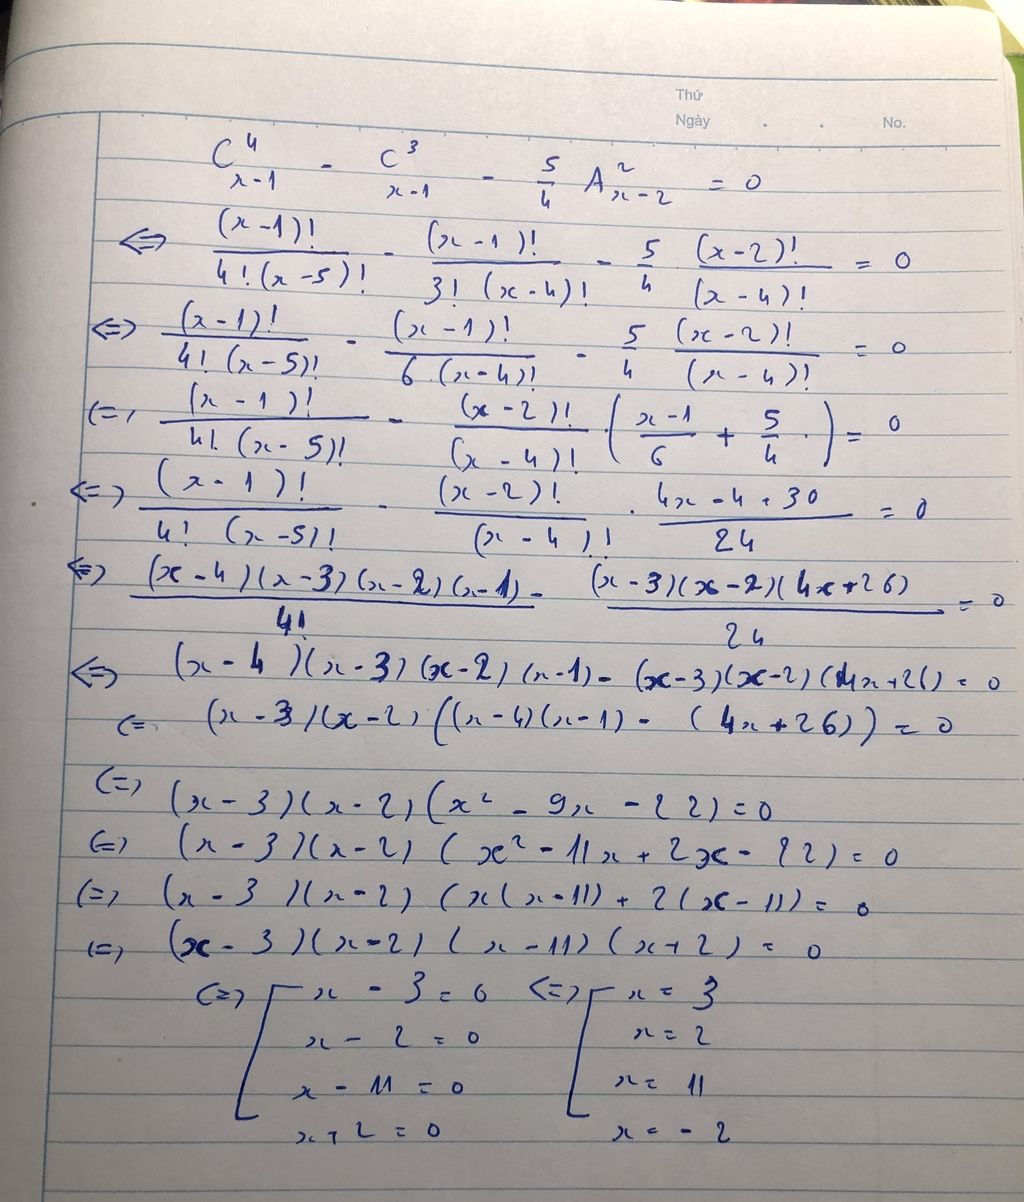 Thứ
Ngày . . No.
C^4_{x-1} - C^3_{x-1} - 5/4 A^2_{x-2} = 0
<=> (x-1)!/(4!(x-5)!) - (x-1)!/(3!(x-4)!) - 5/4 (x-2)!/(x-4)! = 0
<=> (x-1)!/(4!(x-5)!) - (x-1)!/(6.(x-4)!) - 5/4 (x-2)!/(x-4)! = 0
<=> (x-1)!/(4!(x-5)!) - (x-2)!/(x-4)! . ((x-1)/6 + 5/4 .) = 0
<=> (x-1)!/(4!(x-5)!) - (x-2)!/(x-4)! . (4x-4+30)/24 = 0
<=> (x-4)(x-3)(x-2)(x-1)/4! - (x-3)(x-2)(4x+26)/24 = 0
<=> (x-4)(x-3)(x-2)(x-1) - (x-3)(x-2)(4x+26) = 0
<=> (x-3)(x-2)((x-4)(x-1) - (4x+26)) = 0
<=> (x-3)(x-2)(x² - 9x - 22) = 0
<=> (x-3)(x-2) (x² - 11x + 2x - 22) = 0
<=> (x-3)(x-2) (x(x-11) + 2(x-11) = 0
<=> (x-3)(x-2) (x-11)(x+2) = 0
<=> [ x - 3 = 0 <=> [ x = 3
x - 2 = 0 x = 2
x - 11 = 0 x = 11
x + 2 = 0 x = -2